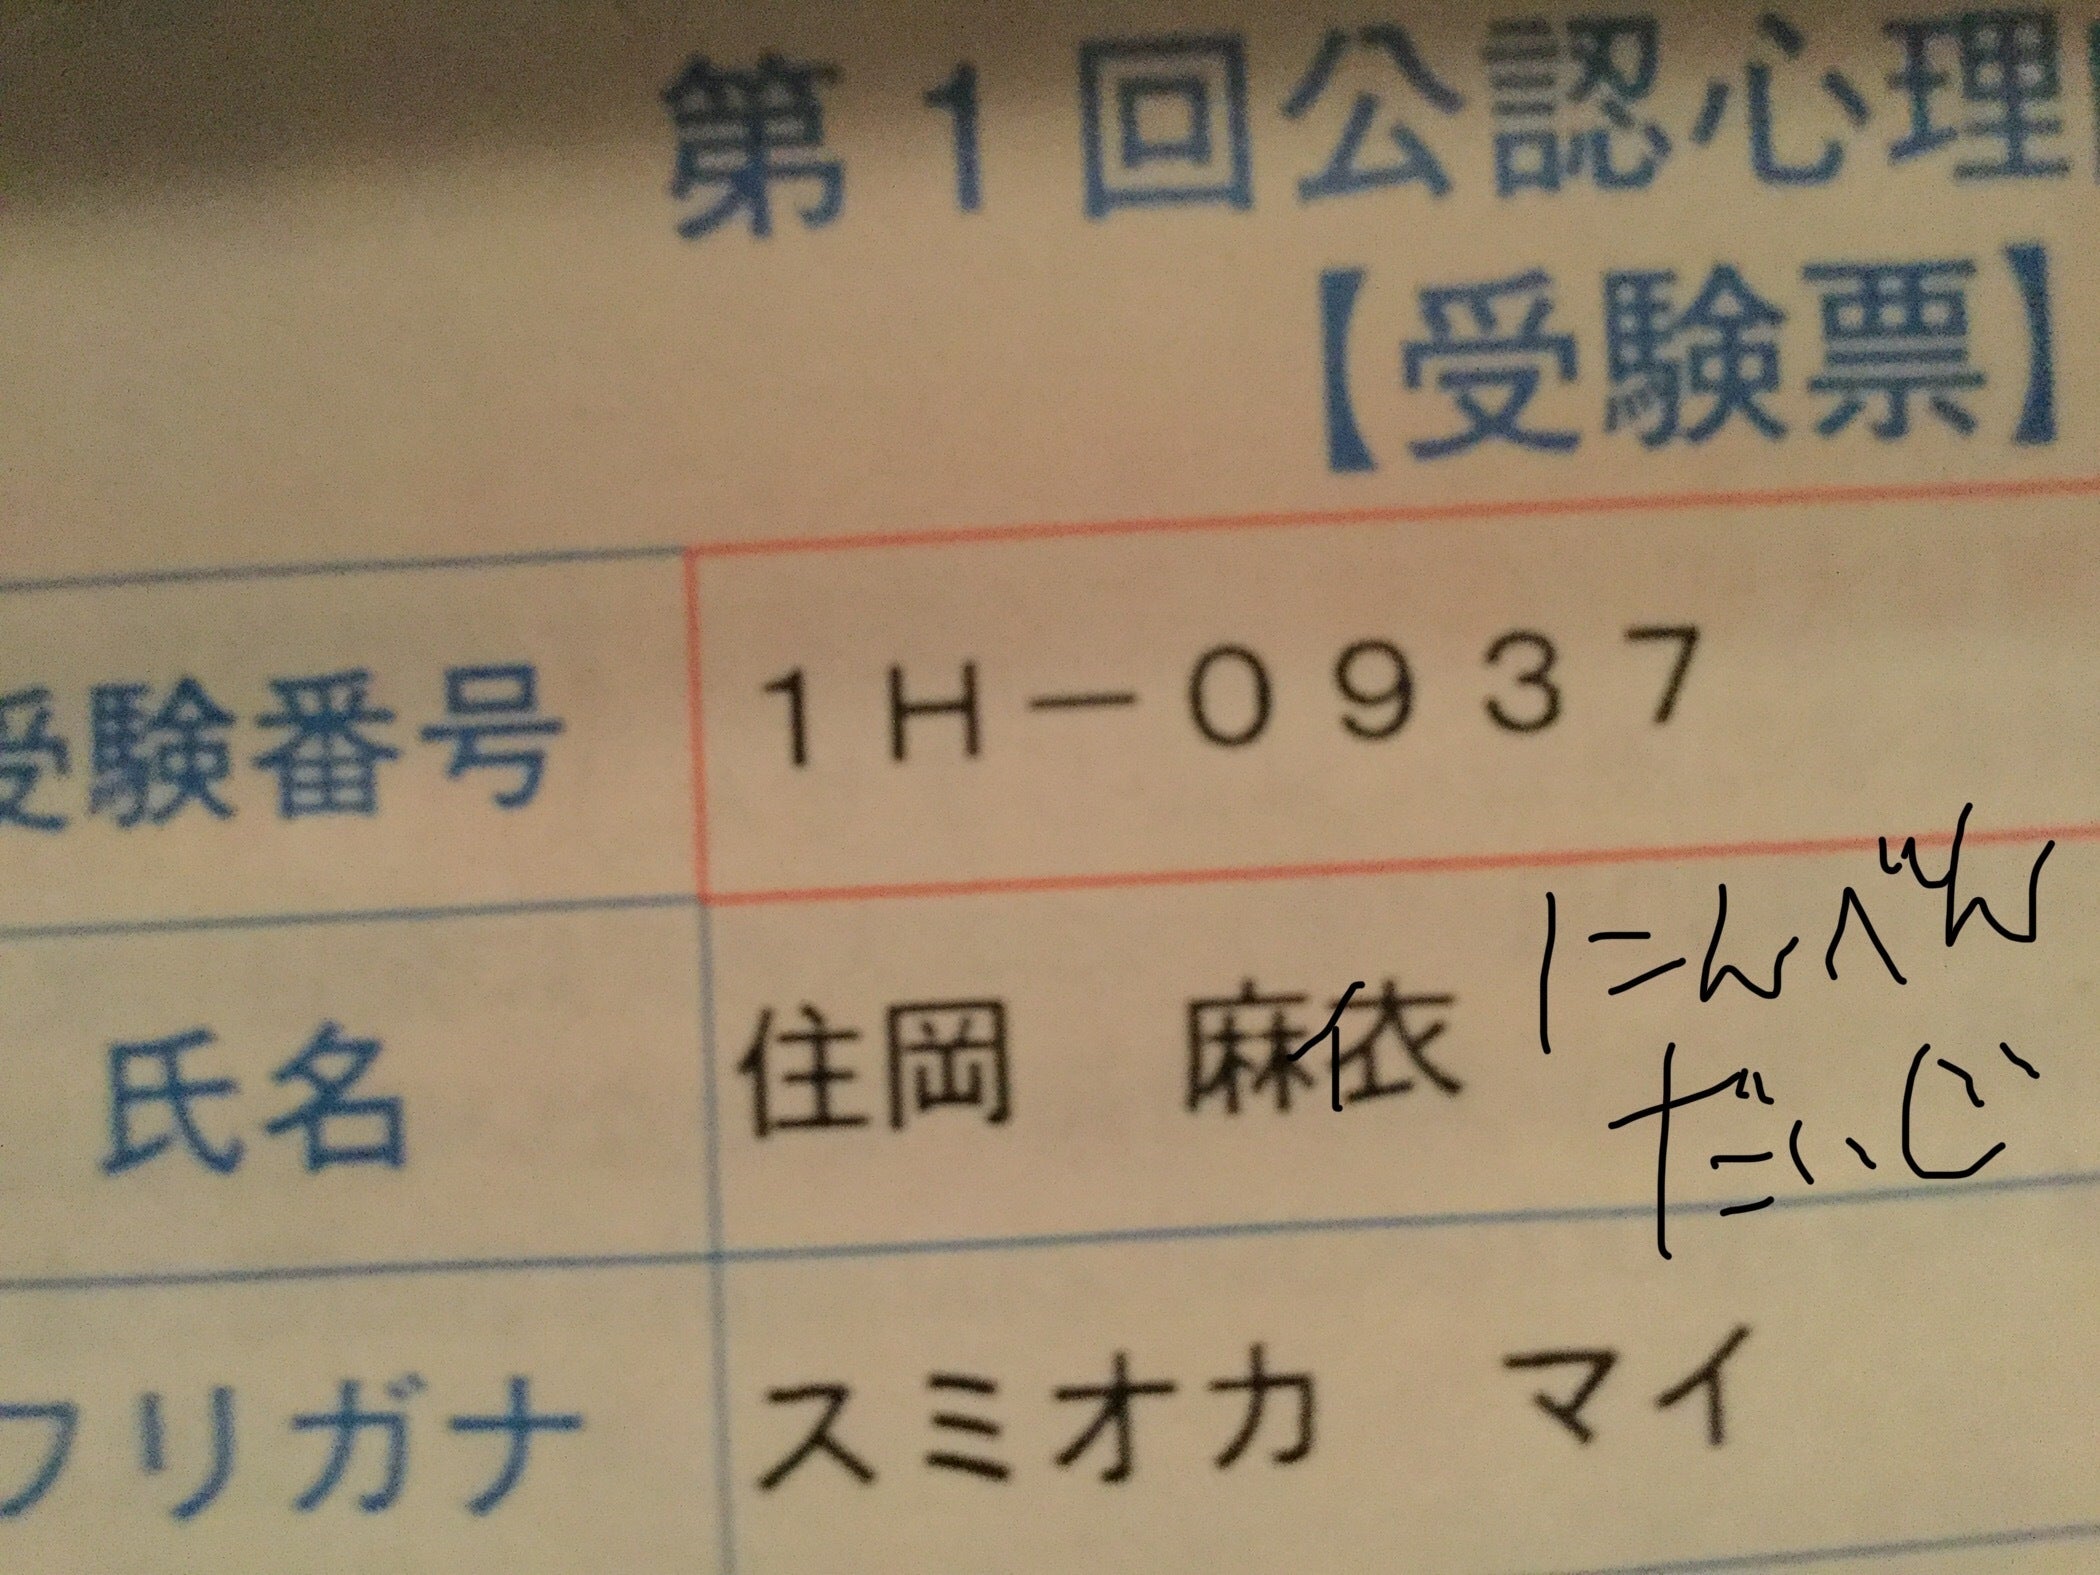 第1回公認心理
【受験票】
受験番号 1H-0937
氏名 住岡 麻衣
にんべん
だいじ
フリガナ スミオカ マイ